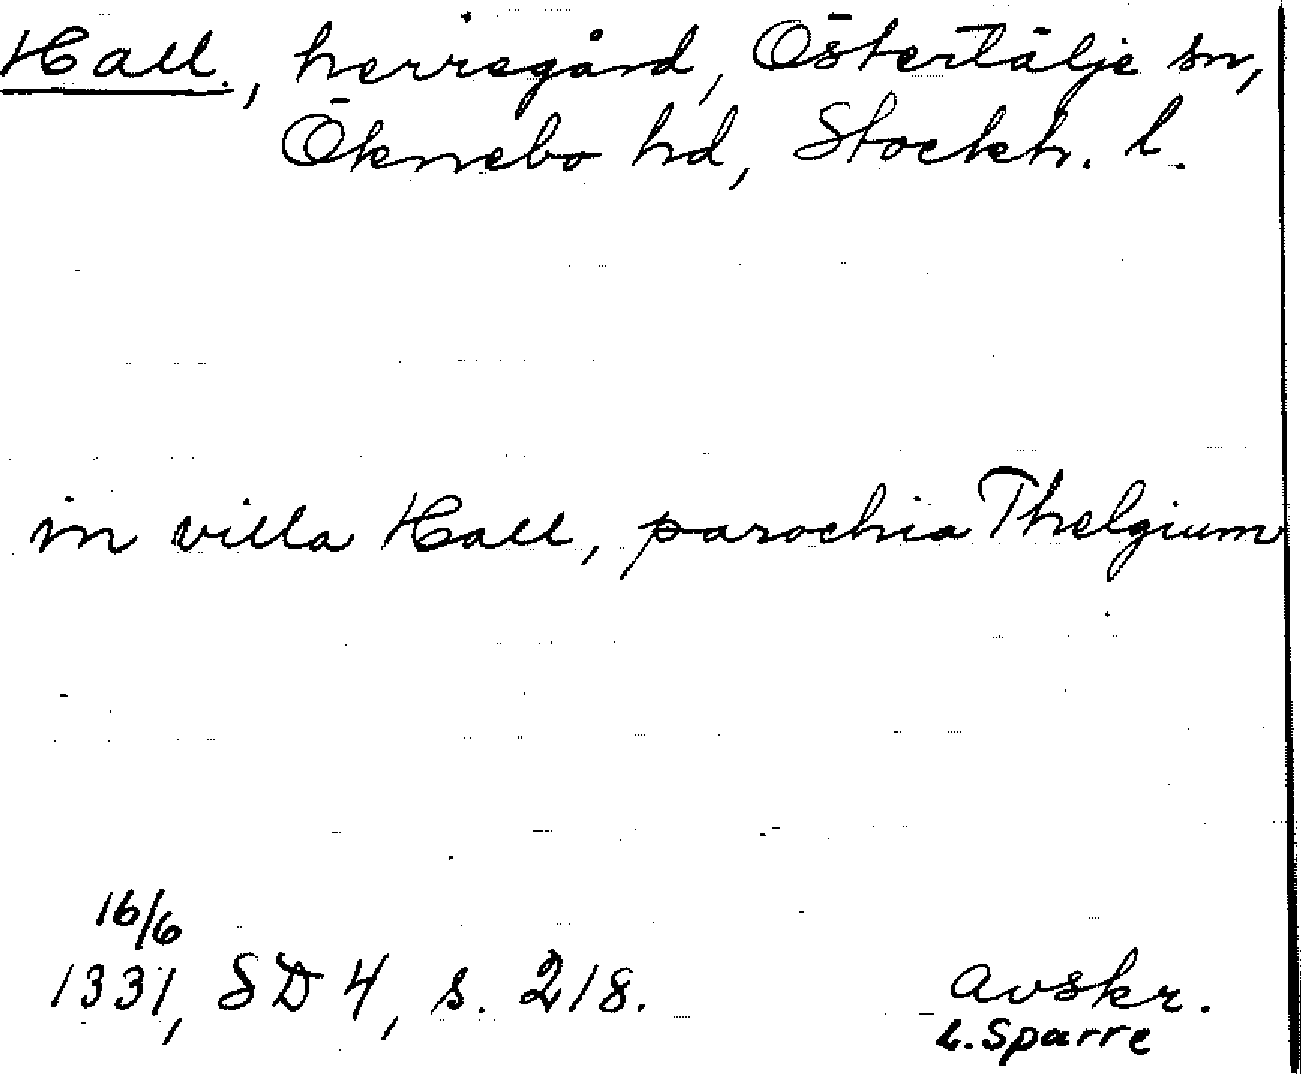 Hall., herregård, Östertälje sn,
Öknebo hd, Stockh. l.
in villa Hall, parochia Thelgium
16/6
1331, SD 4, s. 218.
Avskr.
L. Sparre